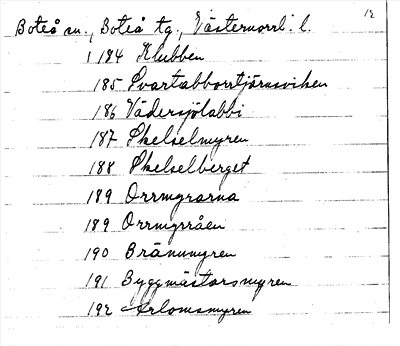 12
Boteå sn., Boteå tg., Västernorrl. l.
184 Klubben
185 Svartabborrtjärnsviken
186 Vädersjölabbi
187 Skelselmyren
188 Skelselberget
189 Orrmyrarna
189 Orrmyrråen
190 Brännmyren
191 Byggmästarsmyren
192 Arlomsmyren